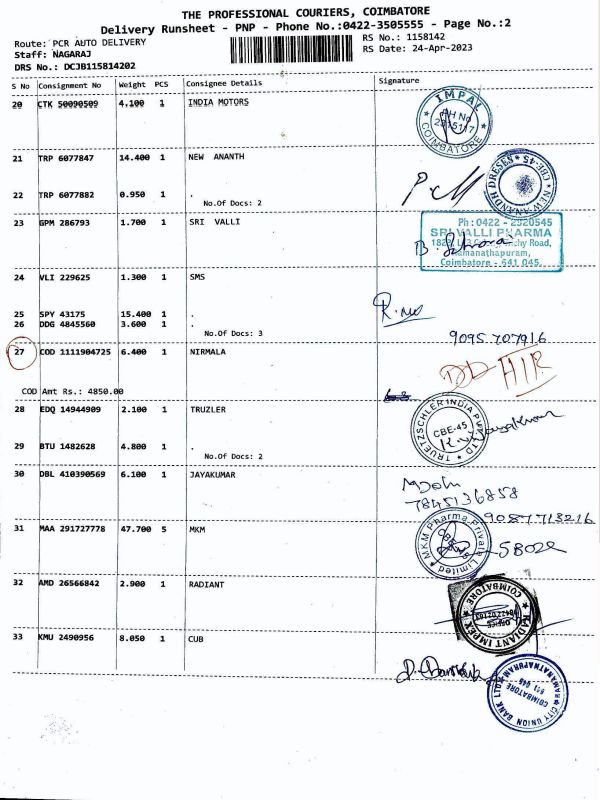 THE PROFESSIONAL COURIERS, COIMBATORE
Delivery Runsheet - PNP - Phone No.:0422-3505555 - Page No.:2
Route: PCR AUTO DELIVERY
Staff: NAGARAJ
DRS No.: DCJB115814202
RS No.: 1158142
RS Date: 24-Apr-2023
S No Consignment No Weight PCS Consignee Details Signature
20 CTK 50090509 4.100 1 INDIA MOTORS
IMPAL
PH No
COIMBATORE
21 TRP 6077847 14.400 1 NEW ANANTH
22 TRP 6077882 0.950 1 .
No.Of Docs: 2
NEW ANANDH DRESES CBE-45
23 GPM 286793 1.700 1 SRI VALLI
Ph: 0422 - 2320545
SRI VALLI PHARMA
Ramanathapuram,
Coimbatore - 641 045.
24 VLI 229625 1.300 1 SMS
25 SPY 43175 15.400 1 .
26 DDG 4845560 3.600 1 .
No.Of Docs: 3
9095707916
27 COD 1111904725 6.400 1 NIRMALA
COD Amt Rs.: 4850.00
28 EDQ 14944909 2.100 1 TRUZLER
TRUETZSCHLER INDIA PVT LTD
CBE-45
29 BTU 1482628 4.800 1 .
No.Of Docs: 2
30 DBL 410390569 6.100 1 JAYAKUMAR
7845136858
9087718216
31 MAA 291727778 47.700 5 MKM
MKM Pharma Private Limited
32 AMD 26566842 2.900 1 RADIANT
RADIANT IMPEX
COIMBATORE
OFFICE
33 KMU 2490956 8.050 1 CUB
CITY UNION BANK LTD
RAMANATHAPURAM
COIMBATORE
641 045